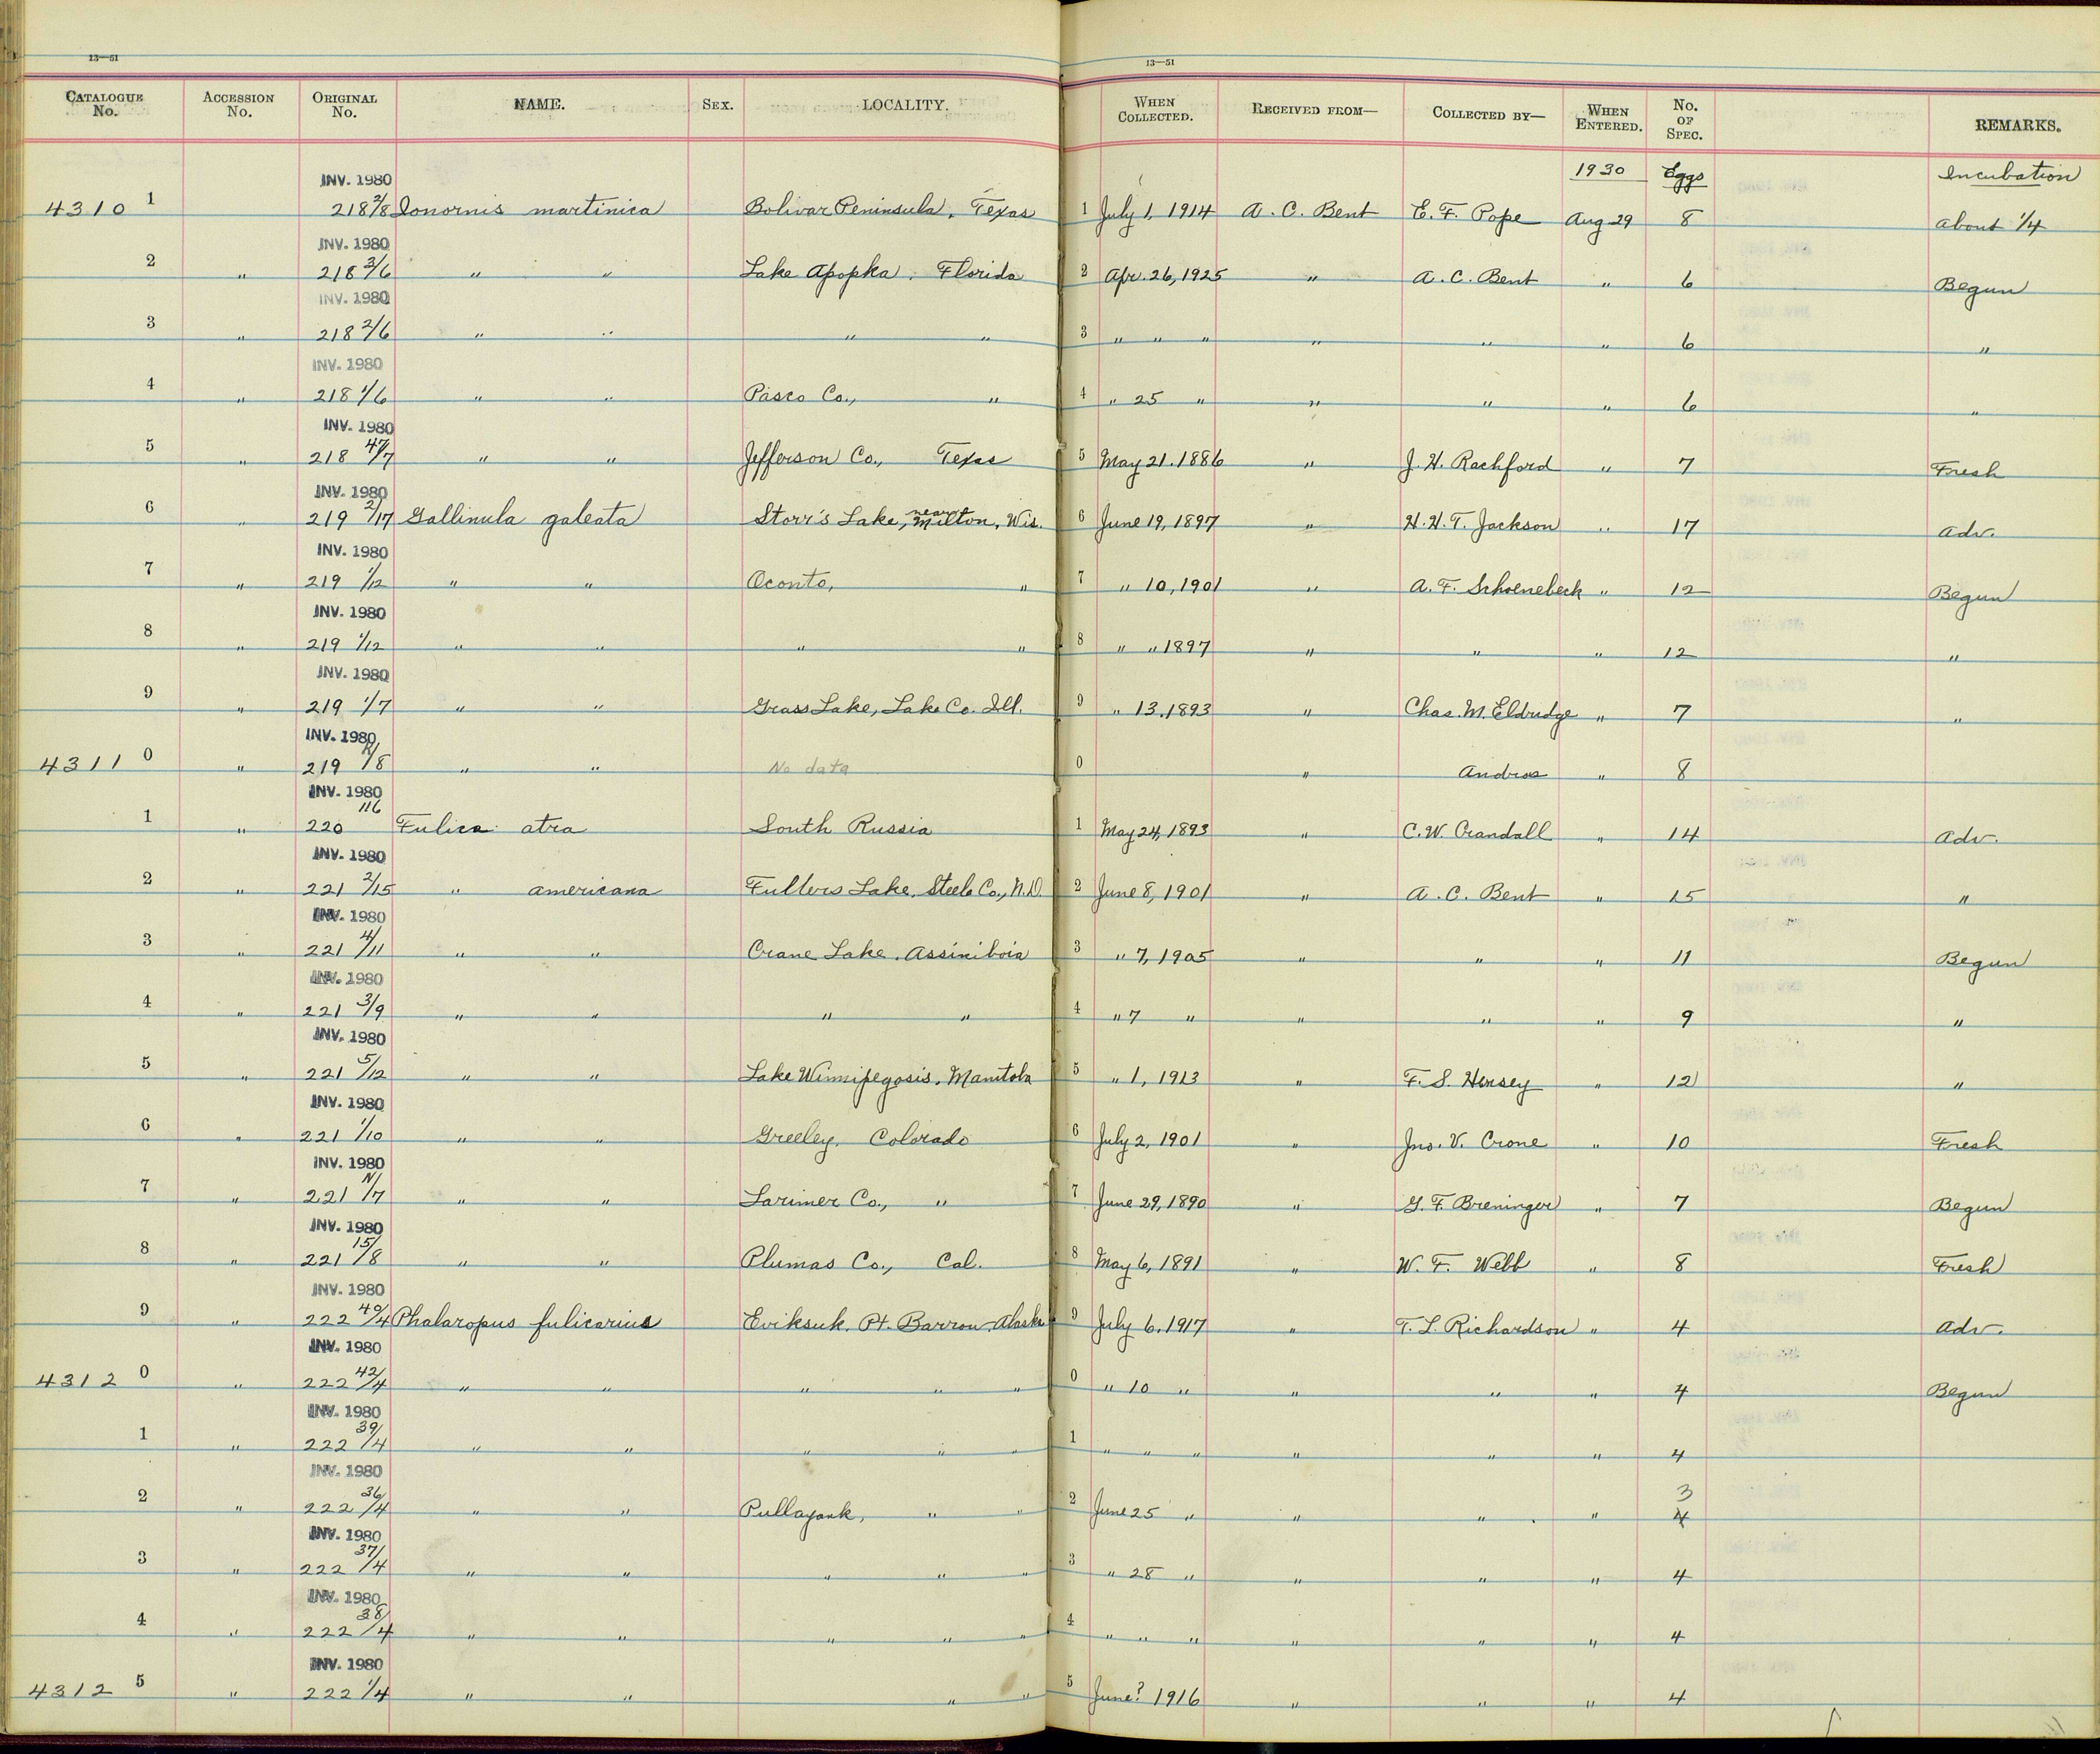 13—51 13—51
CATALOGUE No. ACCESSION No. ORIGINAL No. NAME. SEX. LOCALITY. WHEN COLLECTED. RECEIVED FROM— COLLECTED BY— WHEN ENTERED. No. OF SPEC. REMARKS.
1930 Eggs Incubation
INV. 1980
4310 1 218 2/8 Ionornis martinica Bolivar Peninsula, Texas 1 July 1, 1914 A. C. Bent E. F. Pope Aug 29 8 about 1/4
INV. 1980
2 " 218 3/6 " " Lake Apopka, Florida 2 Apr. 26, 1925 " A. C. Bent " 6 Begun
INV. 1980
3 " 218 2/6 " " " " 3 " " " " " " 6 "
INV. 1980
4 " 218 1/6 " " Pasco Co., " 4 " 25 " " " " 6 "
INV. 1980
5 " 218 47/7 " " Jefferson Co., Texas 5 May 21. 1886 " J. H. Rachford " 7 Fresh
INV. 1980
6 " 219 2/17 Gallinula galeata Storr's Lake, near Milton, Wis. 6 June 19, 1897 " H. H. T. Jackson " 17 Adv.
INV. 1980
7 " 219 1/12 " " Oconto, " 7 " 10, 1901 " A. F. Schoenebeck " 12 Begun
INV. 1980
8 " 219 1/12 " " " " 8 " " 1897 " " " 12 "
INV. 1980
9 " 219 1/7 " " Grass Lake, Lake Co. Ill. 9 " 13, 1893 " Chas. M. Eldridge " 7 "
INV. 1980
4311 0 " 219 /8 " " No data 0 " Andros " 8
INV. 1980
1 " 220 116 Fulica atra South Russia 1 May 24, 1893 " C. W. Crandall " 14 Adv.
INV. 1980
2 " 221 2/15 " americana Fullers Lake, Steele Co., N.D. 2 June 8, 1901 " A. C. Bent " 15 "
INV. 1980
3 " 221 4/11 " " Crane Lake, Assiniboia 3 " 7, 1905 " " " 11 Begun
INV. 1980
4 " 221 3/9 " " " " 4 " 7 " " " " 9 "
INV. 1980
5 " 221 5/12 " " Lake Winnipegosis, Manitoba 5 " 1, 1913 " F. S. Hersey " 12 "
INV. 1980
6 " 221 1/10 " " Greeley, Colorado 6 July 2, 1901 " Jno. V. Crone " 10 Fresh
INV. 1980
7 " 221 N/7 " " Larimer Co., " 7 June 29, 1890 " G. F. Breninger " 7 Begun
INV. 1980
8 " 221 15/8 " " Plumas Co., Cal. 8 May 6, 1891 " W. F. Webb " 8 Fresh
INV. 1980
9 " 222 40/4 Phalaropus fulicarius Eviksuk, Pt. Barrow, Alaska 9 July 6, 1917 " T. L. Richardson " 4 Adv.
INV. 1980
4312 0 " 222 42/4 " " " " " 0 " 10 " " " " 4 Begun
INV. 1980
1 " 222 39/4 " " " " " 1 " " " " " " 4
INV. 1980
2 " 222 36/4 " " Pullayauk, " " 2 June 25 " " " " 3 4
INV. 1980
3 " 222 37/4 " " " " " 3 " 28 " " " " 4
INV. 1980
4 " 222 38/4 " " " " " 4 " " " " " " 4
INV. 1980
4312 5 " 222 1/4 " " " " 5 June ? 1916 " " " 4